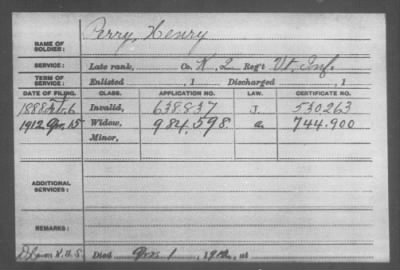 NAME OF SOLDIER: Perry, Henry
SERVICE: Late rank, Co. K, 2 Reg't Vt. Inf.
TERM OF SERVICE: Enlisted , 1 Discharged , 1
DATE OF FILING. CLASS. APPLICATION NO. LAW. CERTIFICATE NO.
1888 Feb. 6 Invalid, 638.837 J. 530263
1912 Apr. 15 Widow, 984,598. a. 744.900
Minor,
ADDITIONAL SERVICES:
REMARKS:
Died 1, 19 , at